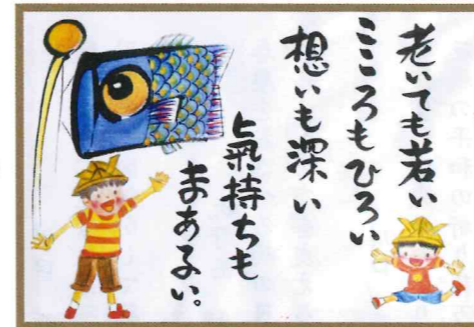 老いても若い
こころもひろい
想いも深い
氣持ちも
まあるい。